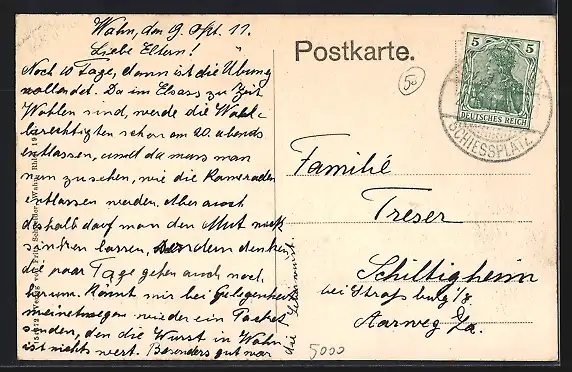 Wahn, den 9. Okt. 11.
Liebe Eltern!
Noch 10 Tage, dann ist die Übung
vollendet. Da im Elsass zu Zeit
Wahlen sind, werde die Wahl-
berechtigten schon am 20. abends
entlassen, und da muss man
nun zusehen, wie die Kameraden
entlassen werden. Aber auch
deshalb darf man den Mut nicht
sinken lassen, sondern denken
die paar Tage gehen auch noch
herum. Könnt mir bei Gelegenheit
meinetwegen wieder ein Packet
senden, den die Wurst in Wahn
ist nichts wert. Besonders gut war
die
Postkarte.
50
5 5
DEUTSCHES REICH
SCHIESSPLATZ
Familie
Treser
Schiltigheim
bei Straßburg i/
Aarweg
5000